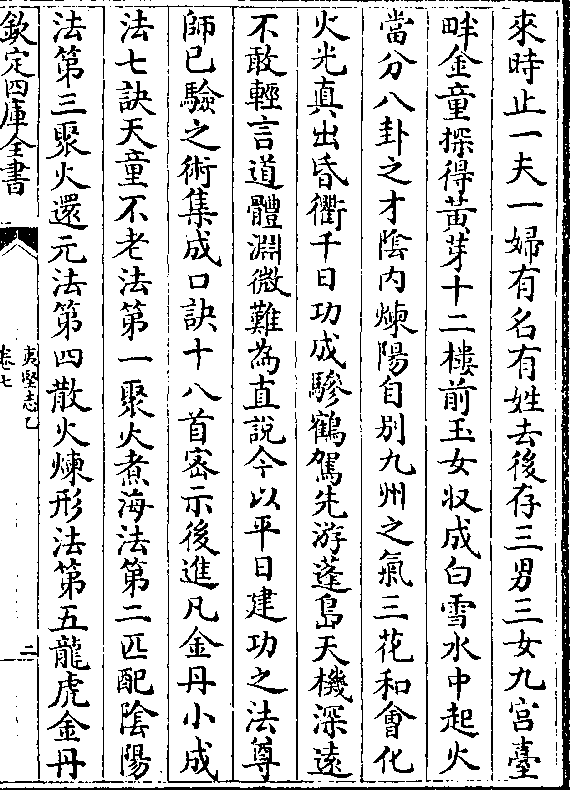 來時止一夫一婦有名有姓去後存三男三女九宮臺
畔金童探得黃芽十二樓前玉女収成白雪水中起火
當分八卦之才陰内煉陽自别九州之氣三花和會化
火光真出昏衢千日功成驂鶴駕先游蓬島天機深遠
不敢輕言道體淵微難為直說今以平日建功之法尊
師已驗之術集成口訣十八首宻示後進凡金丹小成
法七訣天童不老法第一聚火煮海法第二匹配陰陽
法第三聚火還元法第四散火煉形法第五龍虎金丹
欽定四庫全書
夷堅志乙
卷七
二